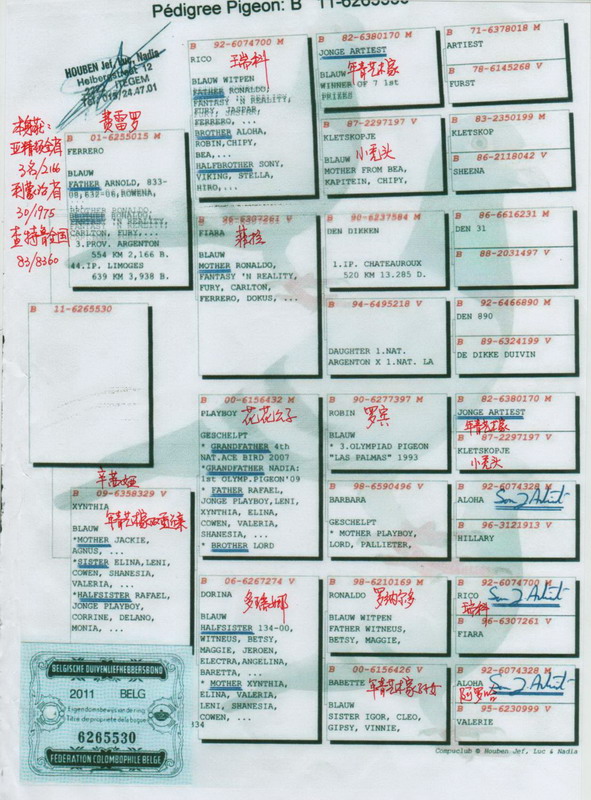 Pédigree Pigeon: B 11-6265530
HOUBEN Jef, Luc, Nadia
Heibergstraat 12
ITEGEM
B 01-6255015 M
费雷罗
FERRERO
BLAUW
FATHER ARNOLD, 833-
08,632-06,ROWENA,
BROTHER RONALDO,
FANTASY 'N REALITY
CARLTON, FURY....
3.PROV. ARGENTON
554 KM 2,166 B.
44.IP. LIMOGES
639 KM 3,938 B.
3名/2166
30/1975
83/8360
B 11-6265530
B 09-6358329 V
XYNTHIA
BLAUW
*MOTHER JACKIE,
AGNUS, ...
*SISTER ELINA,LENI,
COWEN, SHANESIA,
VALERIA, ...
*HALFSISTER RAFAEL,
JONGE PLAYBOY,
CORRINE, DELANO,
MONIA, ...
B 92-6074700 M
RICO
瑞科
BLAUW WITPEN
FATHER RONALDO,
FANTASY 'N REALITY,
FURY, JASPAR,
FERRERO, ...
BROTHER ALOHA,
ROBIN,CHIPY,
BEA,...
HALFBROTHER SONY,
VIKING, STELLA,
HIRO,...
B 96-6307261 V
FIARA
菲拉
BLAUW
MOTHER RONALDO,
FANTASY 'N REALITY,
FURY, CARLTON,
FERRERO, DOKUS, ...
B 00-6156432 M
PLAYBOY
花花公子
GESCHELPT
* GRANDFATHER 4th
NAT.ACE BIRD 2007
*GRANDFATHER NADIA:
1st OLYMP.PIGEON'09
* FATHER RAFAEL,
JONGE PLAYBOY,LENI,
XYNTHIA, ELINA,
COWEN, VALERIA,
SHANESIA, ...
* BROTHER LORD
B 06-6267274 V
DORINA
多瑞娜
BLAUW
HALFSISTER 134-00,
WITNEUS, BETSY,
MAGGIE, JEROEN,
ELECTRA,ANGELINA,
BARETTA, ...
* MOTHER XYNTHIA,
ELINA, VALERIA,
LENI, SHANESIA,
COWEN, ...
B 82-6380170 M
JONGE ARTIEST
年青艺术家
BLAUW
WINNER OF 7 1st
PRIZES
B 87-2297197 V
KLETSKOPJE
小秃头
BLAUW
MOTHER FROM BEA,
KAPITEIN, CHIPY,
B 90-6237584 M
DEN DIKKEN
1.IP. CHATEAUROUX
520 KM 13.285 D.
B 94-6495218 V
DAUGHTER 1.NAT.
ARGENTON X 1.NAT. LA
B 90-6277397 M
ROBIN
罗宾
BLAUW
* 3.OLYMPIAD PIGEON
"LAS PALMAS" 1993
B 98-6590496 V
BARBARA
GESCHELPT
* MOTHER PLAYBOY,
LORD, PALLIETER,
B 98-6210169 M
RONALDO
罗纳尔多
BLAUW WITPEN
FATHER WITNEUS,
BETSY, MAGGIE,
B 00-6156426 V
BABETTE
年青艺术家孙女
BLAUW
SISTER IGOR, CLEO,
GIPSY, VINNIE,
B 71-6378018 M
ARTIEST
B 78-6145268 V
FURST
B 83-2350199 M
KLETSKOP
B 86-2118042 V
SHEENA
B 86-6616231 M
DEN 31
B 88-2031497 V
B 92-6466890 M
DEN 890
B 89-6324199 V
DE DIKKE DUIVIN
B 82-6380170 M
JONGE ARTIEST
年青艺术家
B 87-2297197 V
KLETSKOPJE
小秃头
B 92-6074328 M
ALOHA
B 96-3121913 V
HILLARY
B 92-6074700 M
RICO
瑞科
B 96-6307261 V
FIARA
B 92-6074328 M
ALOHA
阿罗哈
B 95-6230999 V
VALERIE
BELGISCHE DUIVENLIEFHEBBERSBOND
2011 BELG
Eigendomsbewijs van de ring
Titre de propriété de la bague
6265530
FEDERATION COLOMBOPHILE BELGE
Compuclub © Houben Jef, Luc & Nadia